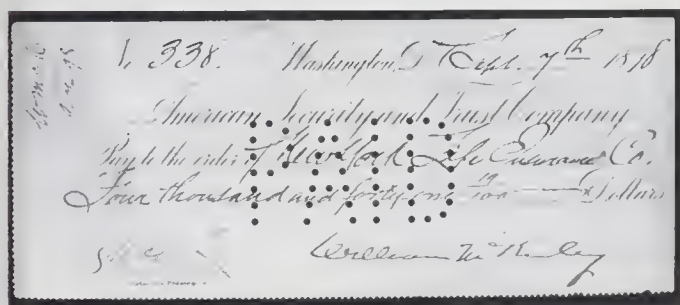 No. 338. Washington, D.C. Sept. 7th 1898
American Security and Trust Company
Pay to the order of New York Life Insurance Co.
Four thousand and forty-one 19/100 Dollars
PAID
William McKinley